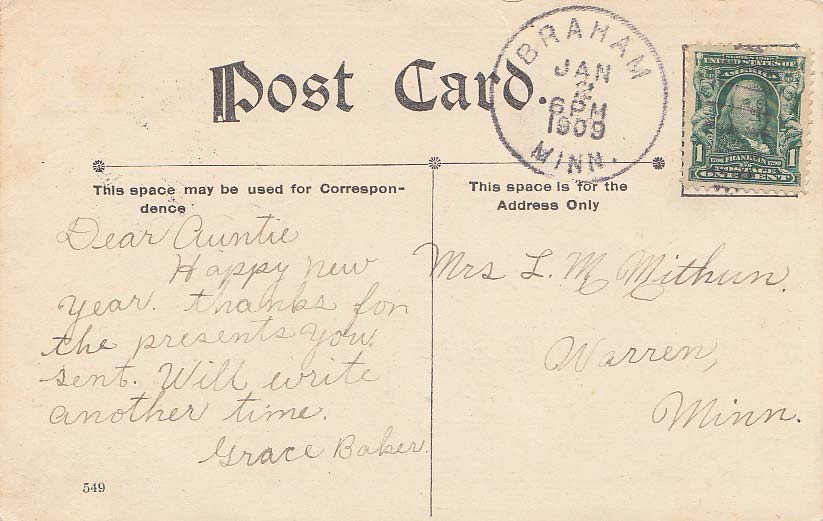 Post Card.
BRAHAM
JAN
2
6 PM
1909
MINN.
UNITED STATES OF
AMERICA
1 1706 FRANKLIN 1790 1
POSTAGE
ONE CENT
This space may be used for Correspon-
dence
This space is for the
Address Only
Dear Auntie
Happy new
year. thanks for
the presents you
sent. Will write
another time.
Grace Baker.
Mrs L. M Mithun.
Warren,
Minn.
549